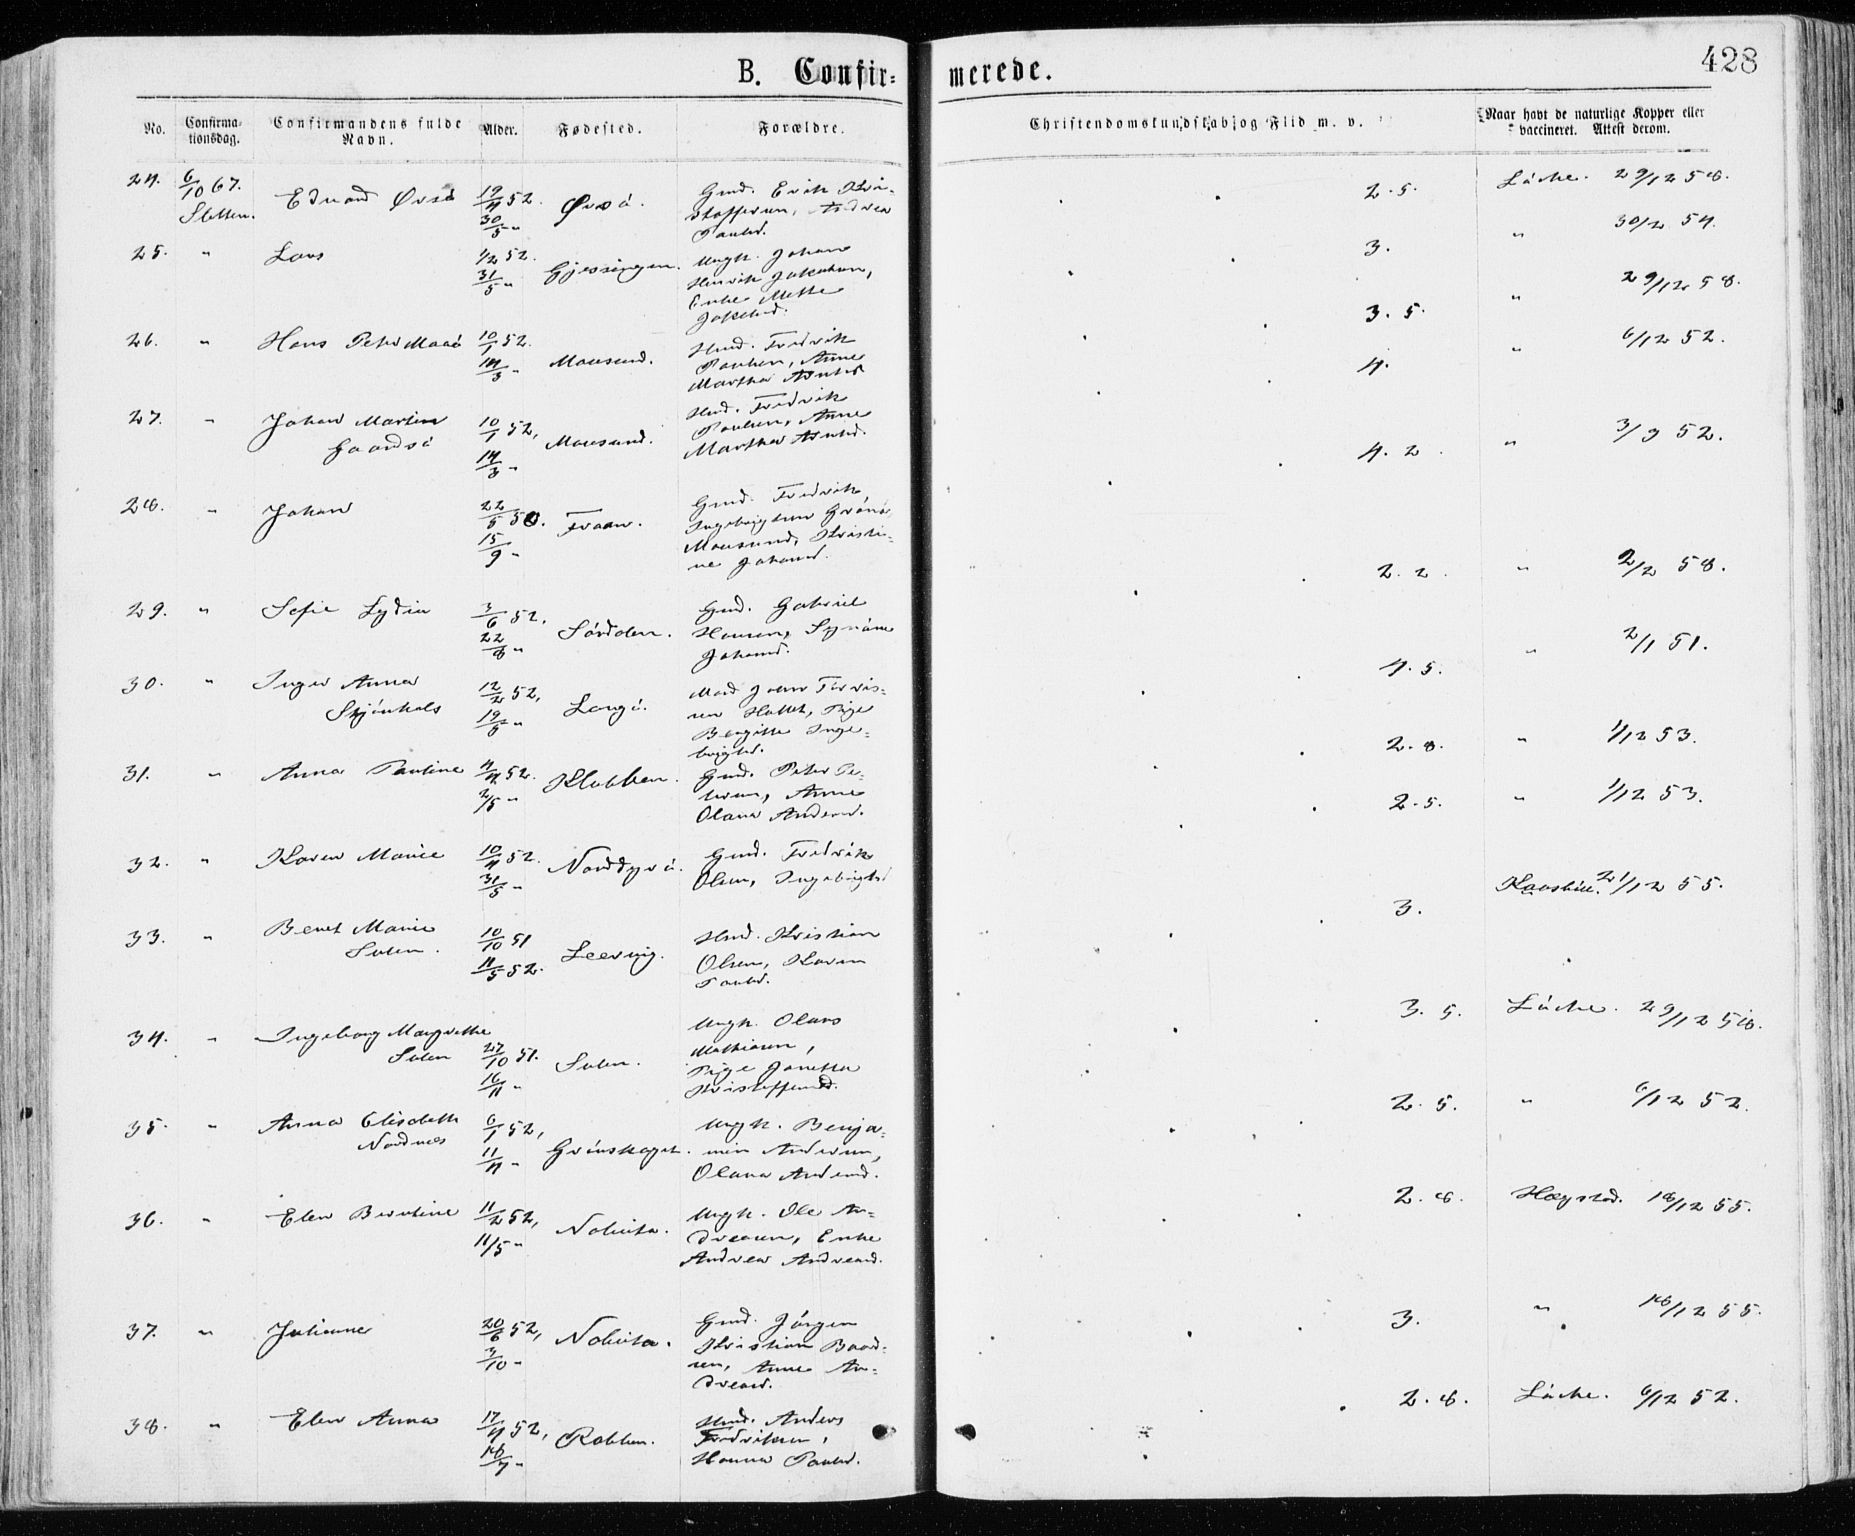 B. Confir=
merede.
428
No.
Confirma-
tionsdag.
Confirmandens fulde
Navn.
Alder.
Fødested.
Forældre.
Christendomskundskab og Flid m. v.
Naar havt de naturlige Kopper eller
vaccineret. Attest derom.
24. 6/10 67. Edvard Øvsö 19/4 52. Øvsö. Gmd. Erik Kri-
Sletten. 30/5 " stoffersen, Andrea
Paulsd.
2.5. Löche. 29/12 58.
25. " Lars 1/2 52. Gjessingen. Ungk. Johan
31/5 " Henrik Jakobsen,
Enke Mette
Jakobsd.
3. " 30/12 54.
26. " Hans Peter 10/1 52. Mausund. Fredrik
14/3 " Paulsen, Anne
Martha
3.5. " 29/12 58.
27. " Johan Martin 10/1 52, Mausund. Fredrik
14/3 " Paulsen, Anne
Martha
4. " 6/12 52.
28. " Johan 22/5 50. Froan. Gmd. Fredrik
15/9 " Ingebrigtsen
Mausund, Kristi-
ne Johansd.
4.2. " 3/9 52.
29. " Sofie Lydia 3/6 52. Sördolen. Gmd. Gabriel
22/8 " Hansen,
Johansd.
2.2. " 2/2 58.
30. " Inger Anna 12/2 52, Langö. John
19/5 " Pige
Bergitte Inge-
brigtsd.
4.5. " 2/1 51.
31. " Anna Pauline 11/4 52. Klubben. Gmd. Peter Pe-
2/5 " tersen, Anne
Olava Andersd.
2.8. " 1/12 53.
32. " Karen Marie 10/4 52. Norddyrö. Gmd. Fredrik
31/5 " Olsen, Ingebrigtsd
2.5. " 1/12 53.
33. " Beret Marie 10/10 51 Leeving. Kristian
Sulen. 11/5 52. Olsen, Karen
Paulsd.
3. 21/12 55.
34. " Ingeborg Margrethe Ungk. Olaus
Sulen 27/10 51. Sulen. Mathiasen,
16/11 " Pige Janetta
Kristoffersd.
3.5. Löche. 29/12 58.
35. " Anna Elisabeth 6/1 52, Grönskaget. Ungk. Benja-
Nordnes 11/4 " min Andersen,
Olava Andersd.
2.5. " 6/12 52.
36. " Elen Berntine 11/2 52, Ungk. Ole An-
11/5 " dreasen, Enke
Andrea Andreasd.
2.8. Hægstad. 18/12 55.
37. " Julianne 20/6 52, Gmd. Jörgen
3/10 " Kristian Baard-
sen, Anne An-
dreasd.
3. " 18/12 55.
38. " Elen Anna 17/4 52, Kobben. Anders
18/7 " Fredriksen,
Hanna Paulsd.
2.8. Löche. 6/12 52.